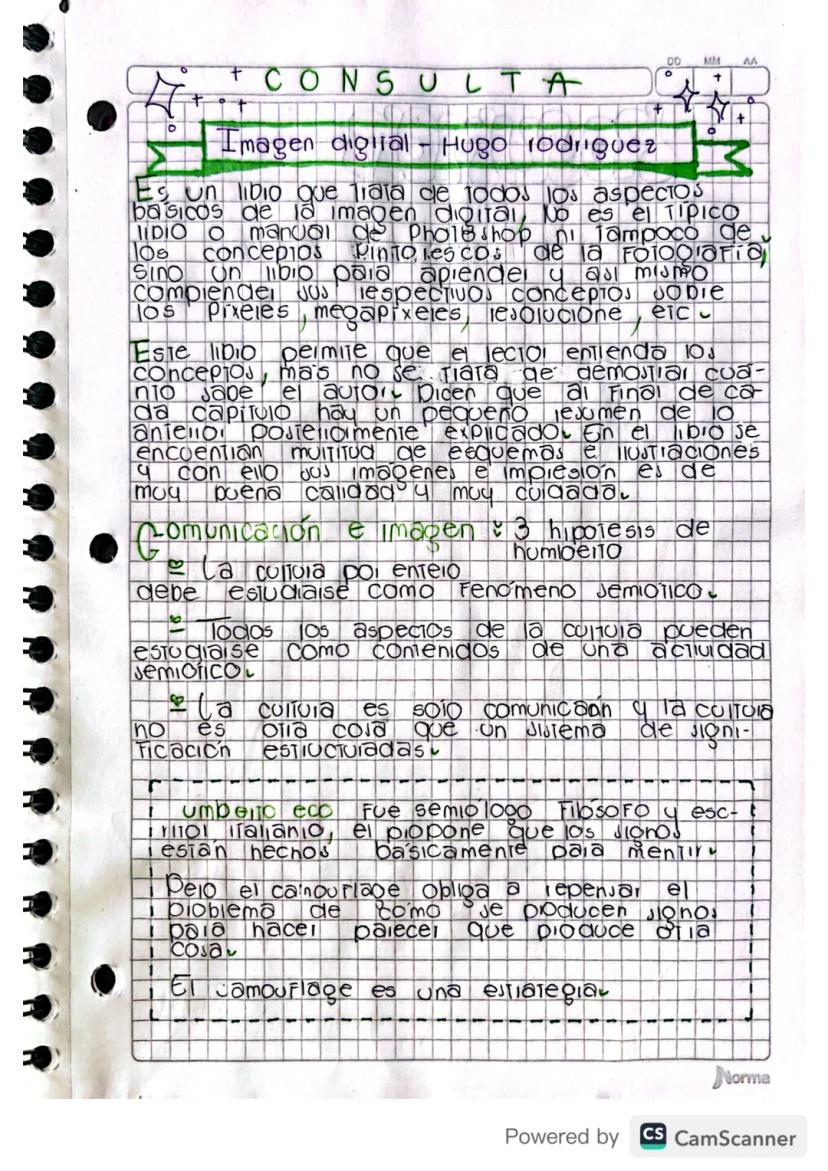 DD MM AA
CONSULTA
Imagen digital - Hugo rodriguez
Es un libro que trata de todos los aspectos
básicos de la imagen digital, No es el típico
libro o manual de Photoshop ni tampoco de
los conceptos Pintorescos de la Fotografía,
Sino un libro para aprender y asi mismo
comprender sus respectivos conceptos sobre
los Píxeles, megapíxeles, resolucione, etc.
Este libro permite que el lector entienda los
conceptos, mas no se trata de demostrar cuá-
nto sabe el autor. Dicen que al final de ca-
da capítulo hay un pequeño resumen de lo
anterior posteriormente explicado. En el libro se
encuentran multitud de esquemas e ilustraciones
y con ello sus imágenes e impresión es de
muy buena calidad y muy cuidada.
Comunicación e imagen : 3 hipotesis de
humberto
La cultura por entero
debe estudiarse como Fenómeno semiotico.
Todos los aspectos de la cultura pueden
estudiarse como contenidos de una actividad
semiótico.
La cultura es solo comunicaón y la cultura
no es otra cosa que un sistema de signi-
ficación estructuradas.
umberto eco Fue semiólogo Filósofo y esc-
ritor italianio, el propone que los signos
están hechos básicamente para mentir.
Pero el camouflage obliga a repensar el
problema de cómo se producen signos
para hacer parecer que produce otra
cosa.
El camouflage es una estrategia.
Norma
Powered by CS CamScanner